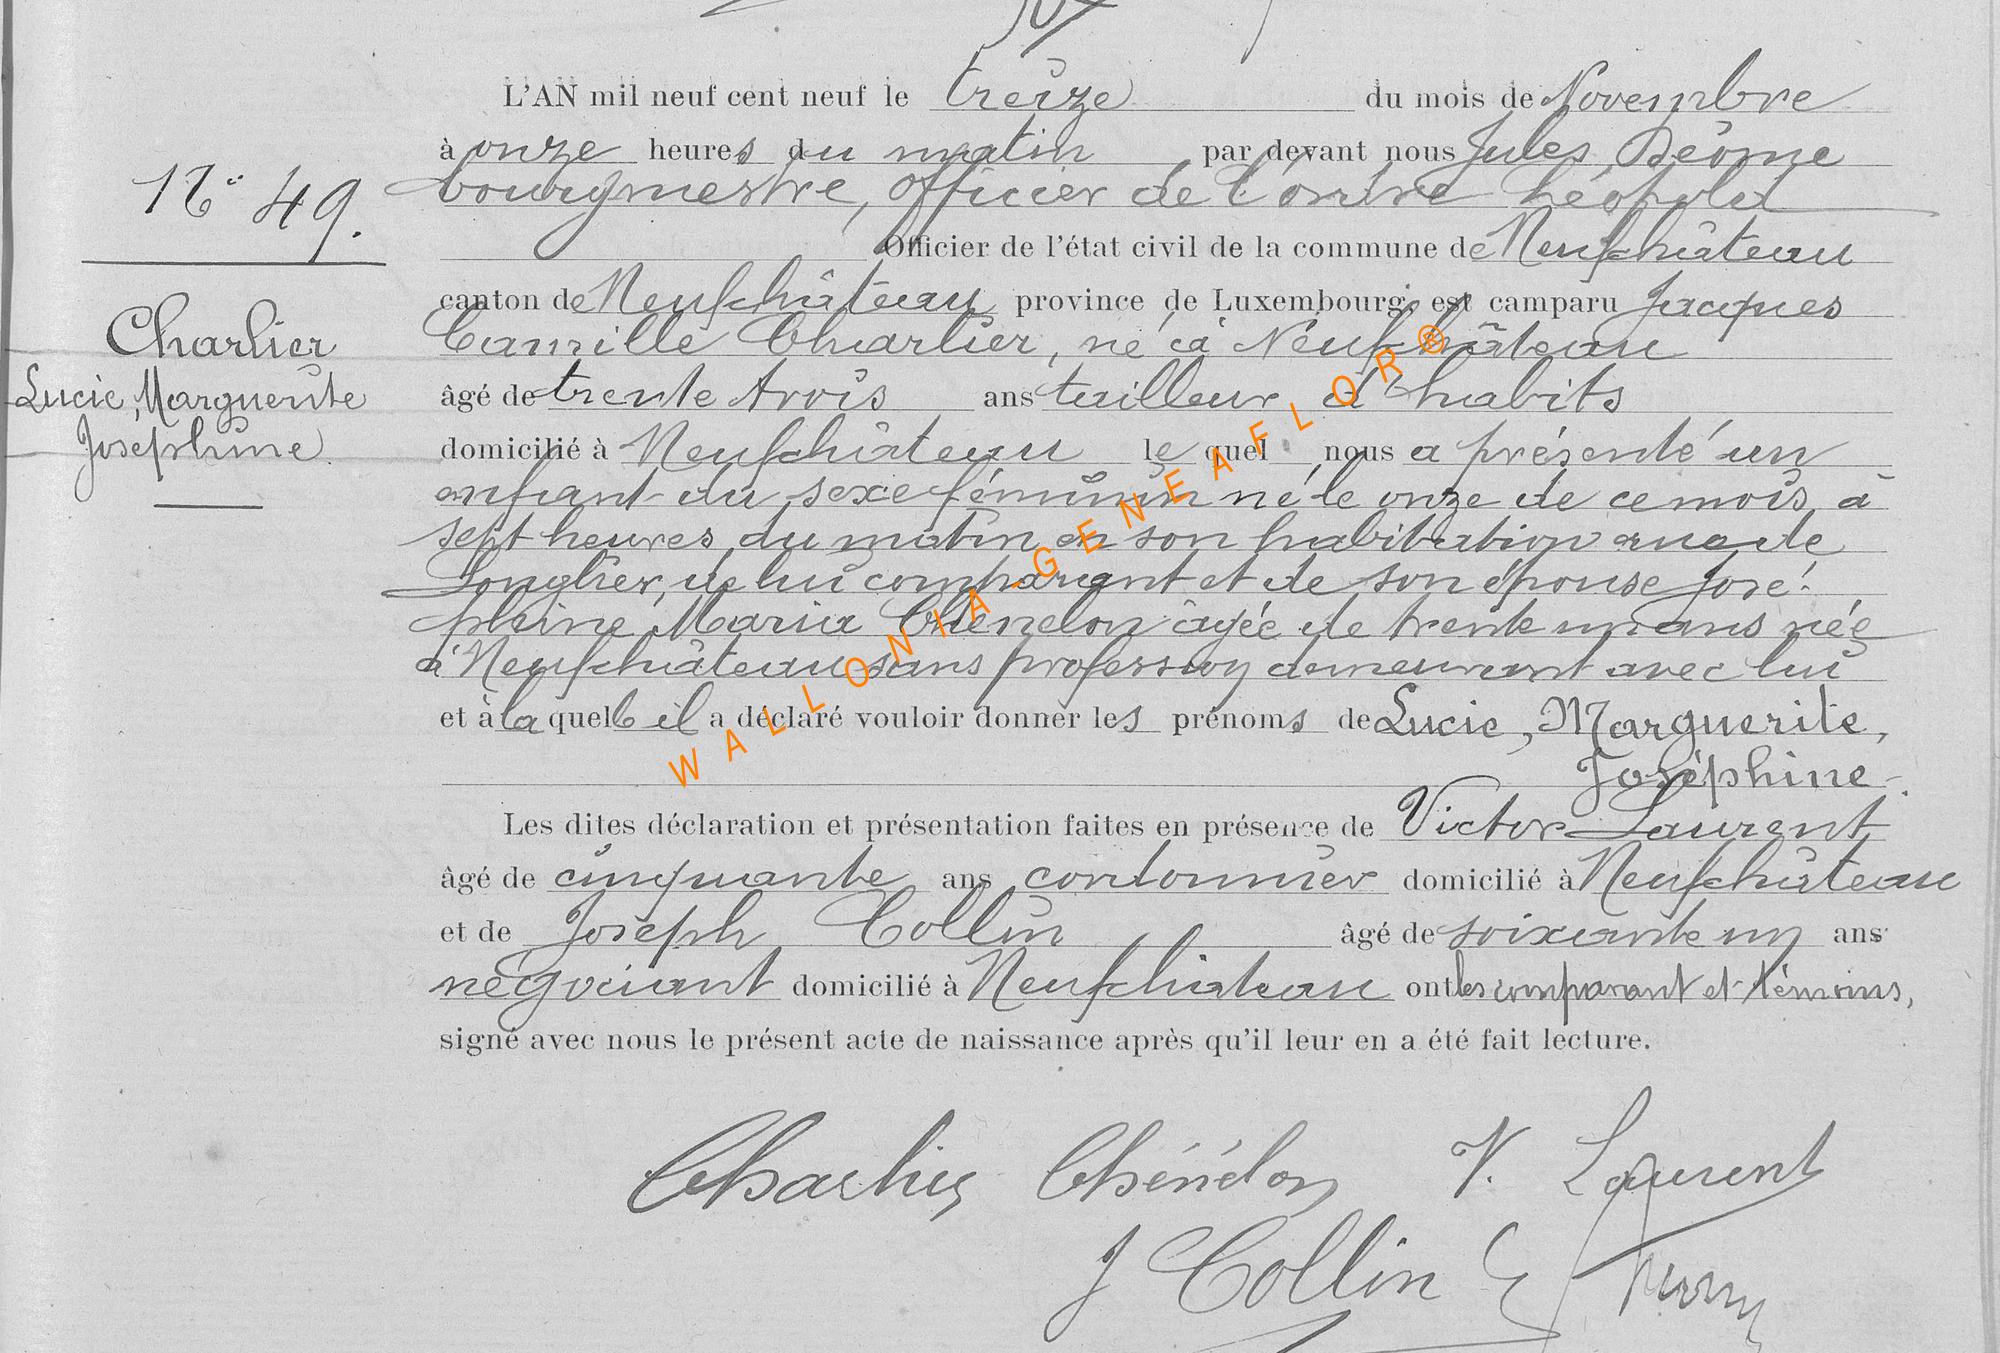 L'AN mil neuf cent neuf le treize du mois de Novembre
à onze heures du matin par devant nous Jules Déome
N° 49. bourgmestre, officier de l'ordre Léopold
Officier de l'état civil de la commune de Neufchâteau
canton de Neufchâteau province de Luxembourg est camparu Jacques
Charlier
Camille Charlier, né à Neufchâteau
Lucie, Marguerite
âgé de trente trois ans tailleur d'habits
Joséphine
domicilié à Neufchâteau lequel nous a présenté un
enfant du sexe féminin né le onze de ce mois, à
sept heures du matin en son habitation rue de
Longlier, de lui comparant et de son épouse José-
phine, Maria Chénelon âgée de trente un ans née
à Neufchâteau sans profession demeurant avec lui
et à laquelle il a déclaré vouloir donner les prénoms de Lucie, Marguerite,
Joséphine.
Les dites déclaration et présentation faites en présence de Victor Laurent
âgé de cinquante ans cordonnier domicilié à Neufchâteau
et de Joseph Collin âgé de soixante un ans
négociant domicilié à Neufchâteau ont les comparant et témoins,
signé avec nous le présent acte de naissance après qu'il leur en a été fait lecture.
Charlier Chénélon V. Laurent
J Collin
WALLONIA-GENEAFLOR®